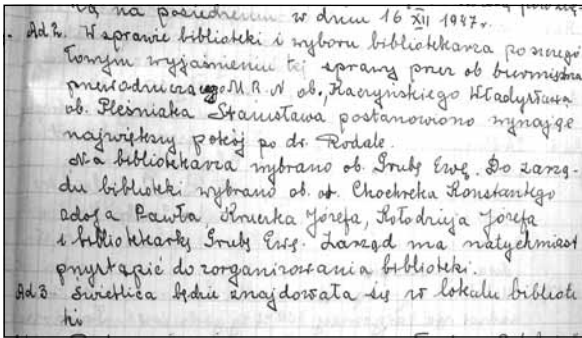 na posiedzeniu w dniu 16 XII 1947 r.
Ad 2. W sprawie biblioteki i wyboru bibliotekarza po szczegó
łowym wyjaśnieniu tej sprawy przez ob burmistrza
przewodniczącego M.R.N. ob. Kaczyńskiego Władysława
ob. Pleśniaka Stanisława postanowiono wynająć
największy pokój po dr. Rodale.
Na bibliotekarza wybrano ob. Grubą Ewę. Do zarzą-
du biblioteki wybrano ob. ob. Chochrcka Konstantego
Pawła, Kruczka Józefa, Kołodzieja Józefa
i bibliotekarkę Grubą Ewę. Zarząd ma natychmiast
przystąpić do zorganizowania biblioteki.
Ad 3. Świetlica będzie znajdowała się w lokalu bibliote
ki